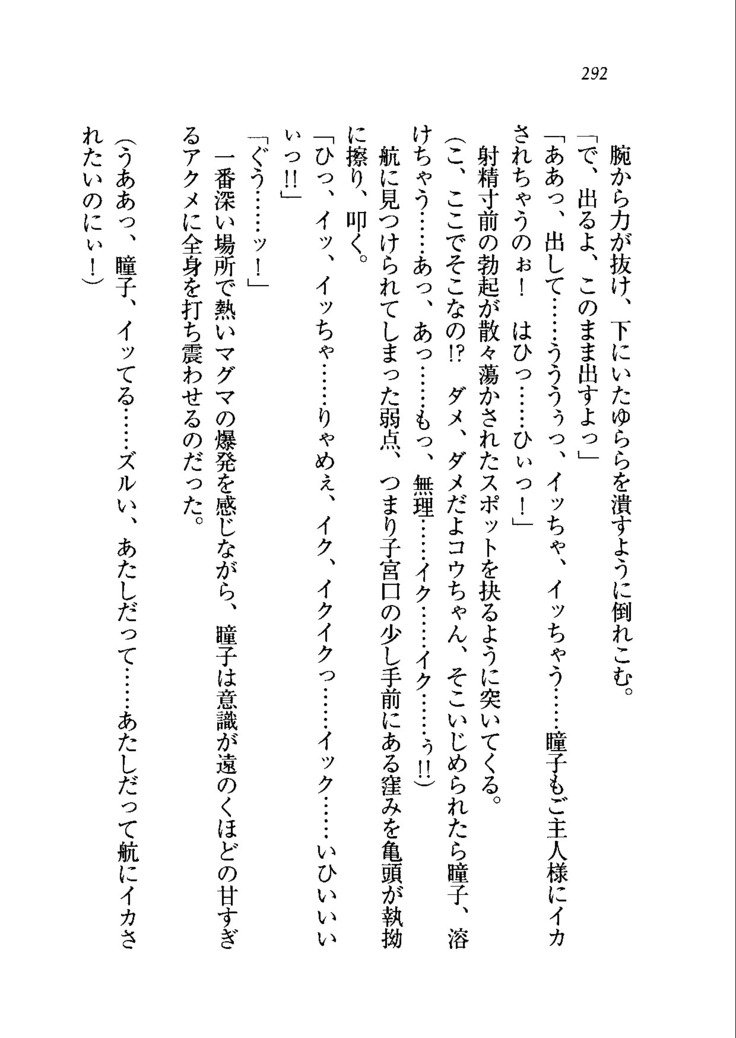 292
腕から力が抜け、下にいたゆららを潰すように倒れこむ。
「で、出るよ、このまま出すよっ」
「ああっ、出して……うううぅっ、イッちゃ、イッちゃう……瞳子もご主人様にイカ
されちゃうのぉ！　はひっ……ひぃっ！」
射精寸前の勃起が散々蕩かされたスポットを抉るように突いてくる。
（こ、ここでそこなの!?　ダメ、ダメだよコウちゃん、そこいじめられたら瞳子、溶
けちゃう……あっ、あっ……もっ、無理……イク……イク……ぅ!!）
航に見つけられてしまった弱点、つまり子宮口の少し手前にある窪みを亀頭が執拗
に擦り、叩く。
「ひっ、イッ、イッちゃ……りゃめぇ、イク、イクイクっ……イック……いひいいい
ぃっ!!」
「ぐう……ッ！」
一番深い場所で熱いマグマの爆発を感じながら、瞳子は意識が遠のくほどの甘すぎ
るアクメに全身を打ち震わせるのだった。
（うああっ、瞳子、イッてる……ズルい、あたしだって……あたしだって航にイカさ
れたいのにぃ！）